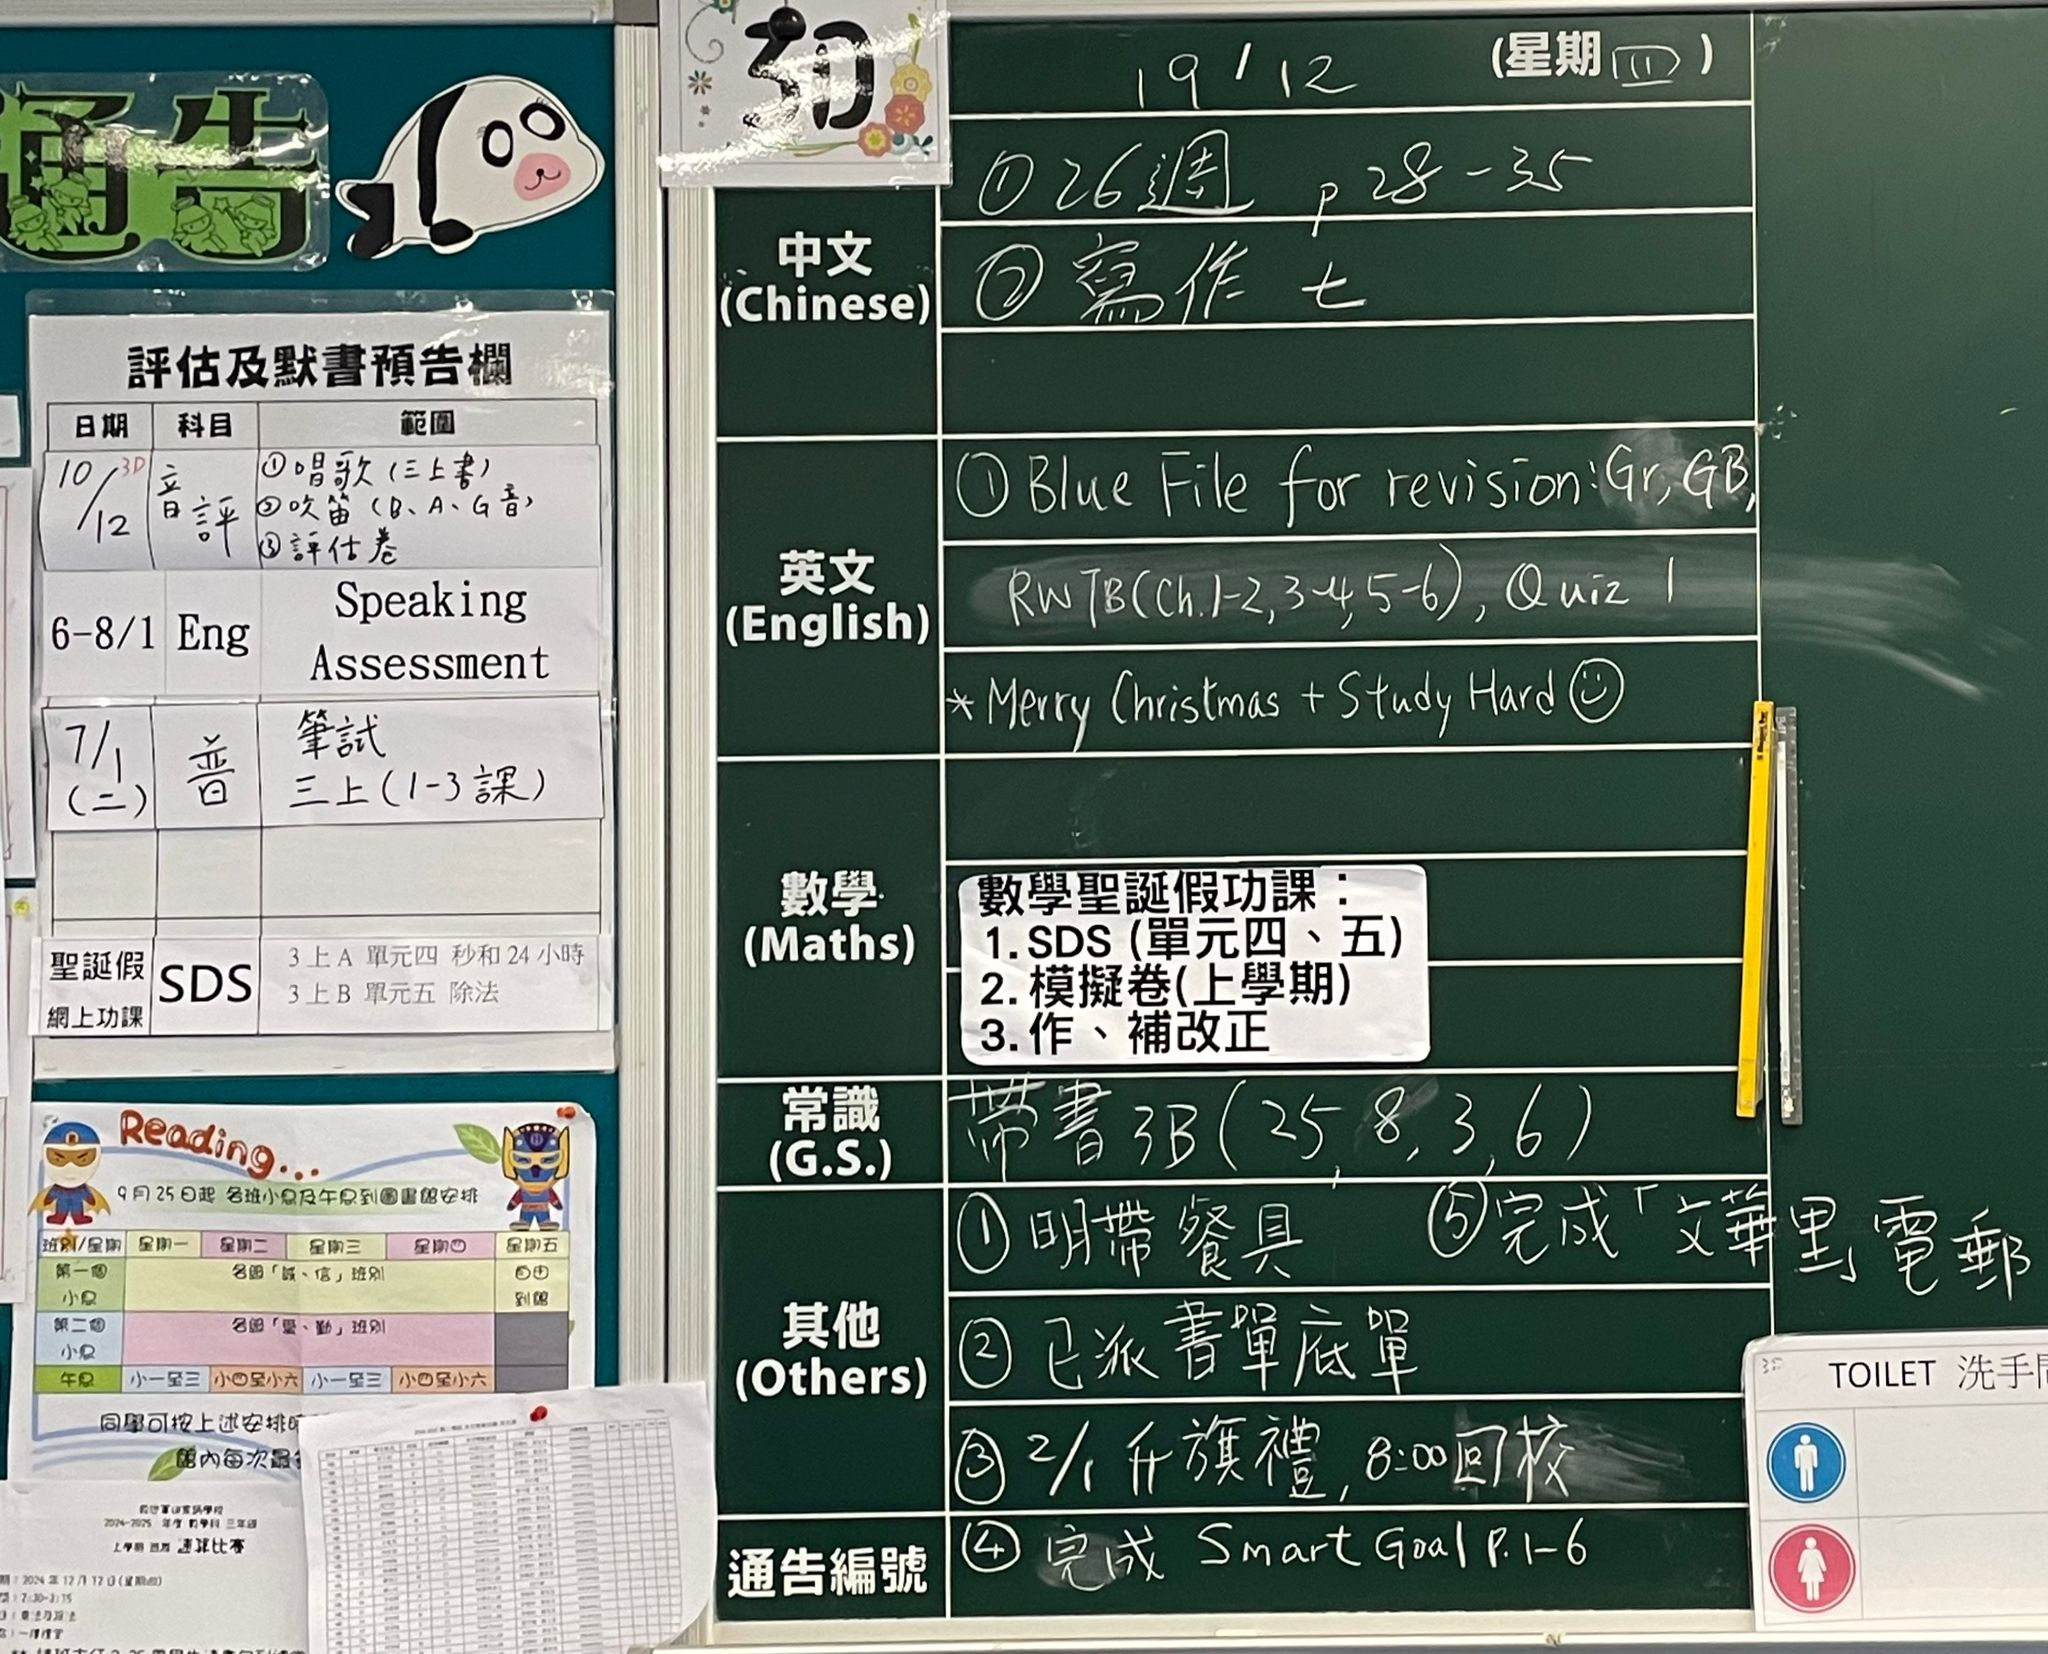 通告
評估及默書預告欄
日期 科目 範圍
10/12 3D 音評 ①唱歌(三上書)
②吹笛(B、A、G音)
③評估卷
6-8/1 Eng Speaking
Assessment
7/1 (二) 普 筆試
三上(1-3課)
聖誕假
網上功課 SDS 3上A 單元四 秒和24小時
3上B 單元五 除法
Reading...
9月25日起 各班小息及午息到圖書館安排
班別/星期 星期一 星期二 星期三 星期四 星期五
第一個
小息 各圖「誠、信」班別 自由
到館
第二個
小息 各圖「愛、勤」班別
午息 小一至三 小四至小六 小一至三 小四至小六
同學可按上述安排
館內每次最
2024-2025 年度 數學科 三年級
速算比賽
2024年12月12日(星期四)
3D
19/12 (星期四)
中文
(Chinese)
①26週 p28-35
②寫作 七
英文
(English)
①Blue File for revision: Gr, GB,
RWTB(Ch.1-2,3-4,5-6), Quiz 1
*Merry Christmas + Study Hard
數學
(Maths)
數學聖誕假功課：
1. SDS (單元四、五)
2. 模擬卷(上學期)
3. 作、補改正
常識
(G.S.)
帶書3B(25,8,3,6)
其他
(Others)
①明帶餐具 ⑤完成「文華里」電郵
②已派書單底單
③2/1升旗禮, 8:00回校
通告編號
④完成 Smart Goal P.1-6
TOILET 洗手間